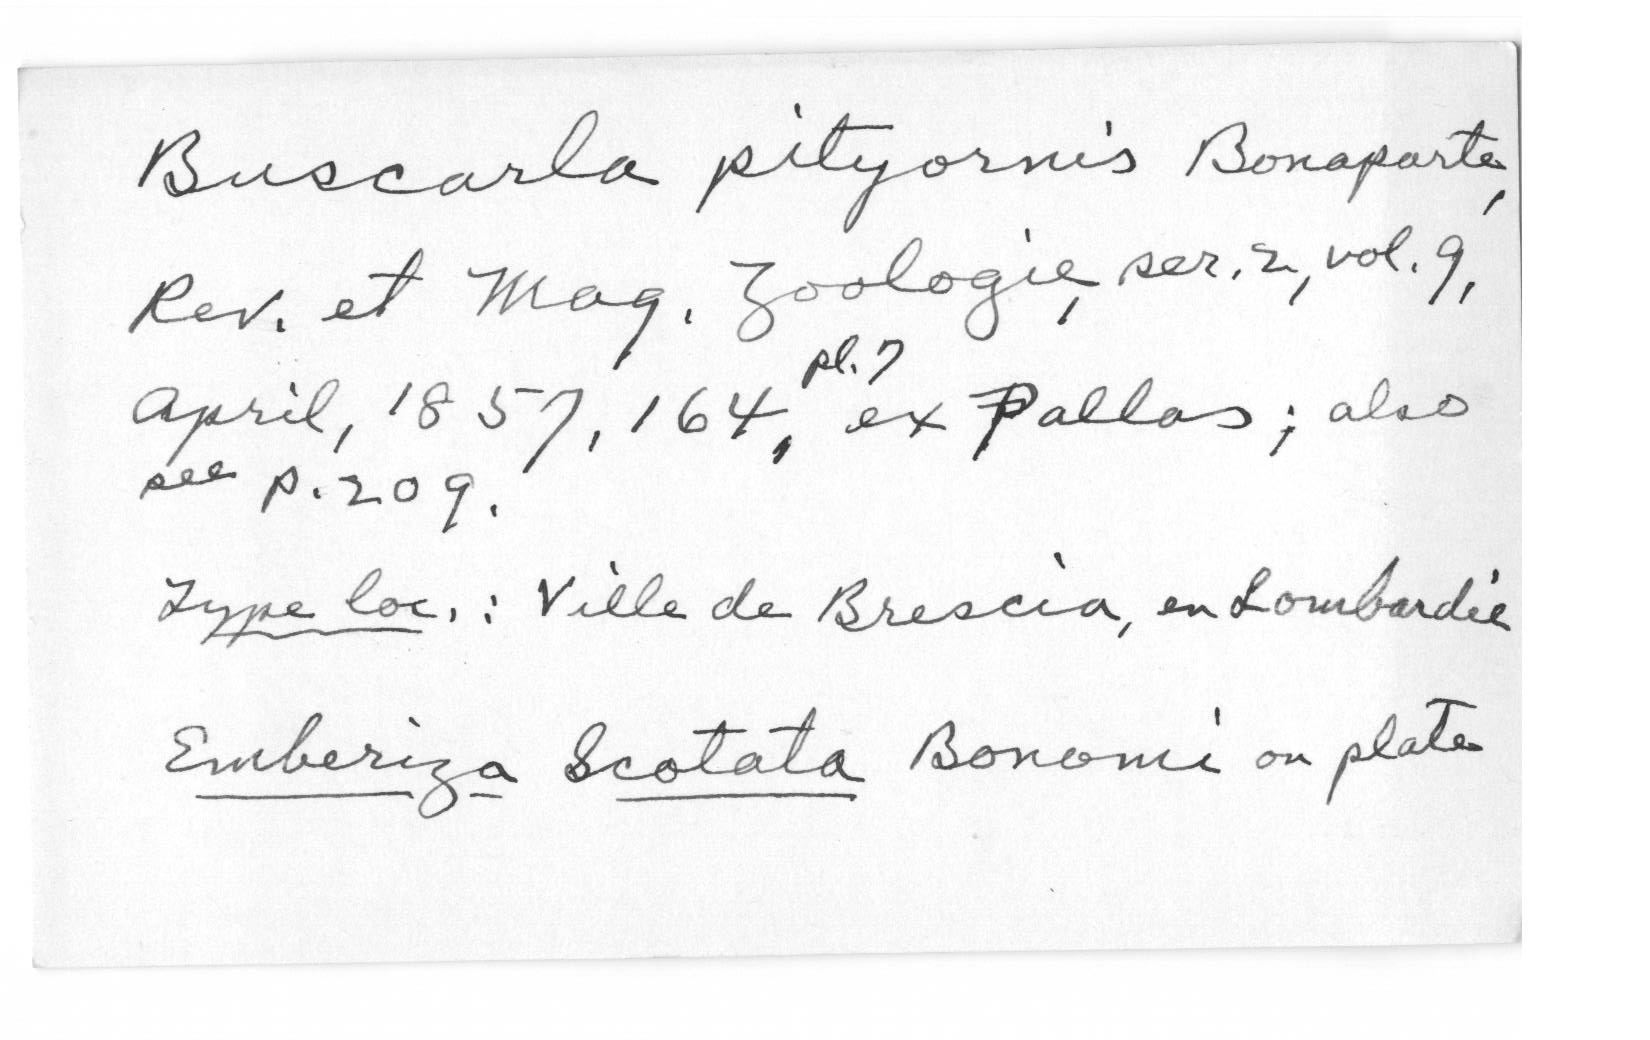 Buscarla pityornis Bonaparte,
Rev. et Mag. Zoologie, ser. 2, vol. 9,
April, 1857, 164, pl. 7 ex Pallas; also
see p. 209.
Type loc.: Ville de Brescia, en Lombardie
Emberiza Scotata Bonomi on plate